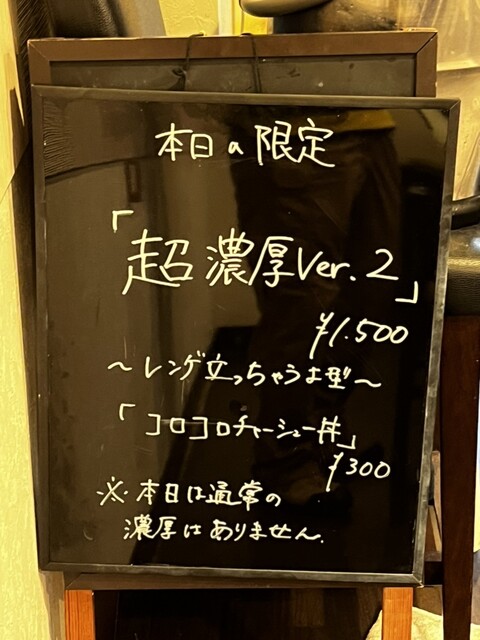 本日の限定
「超濃厚Ver.2」
¥1.500
～レンゲ立っちゃうよ型～
「コロコロチャーシュー丼」
¥300
※本日は通常の
濃厚はありません.